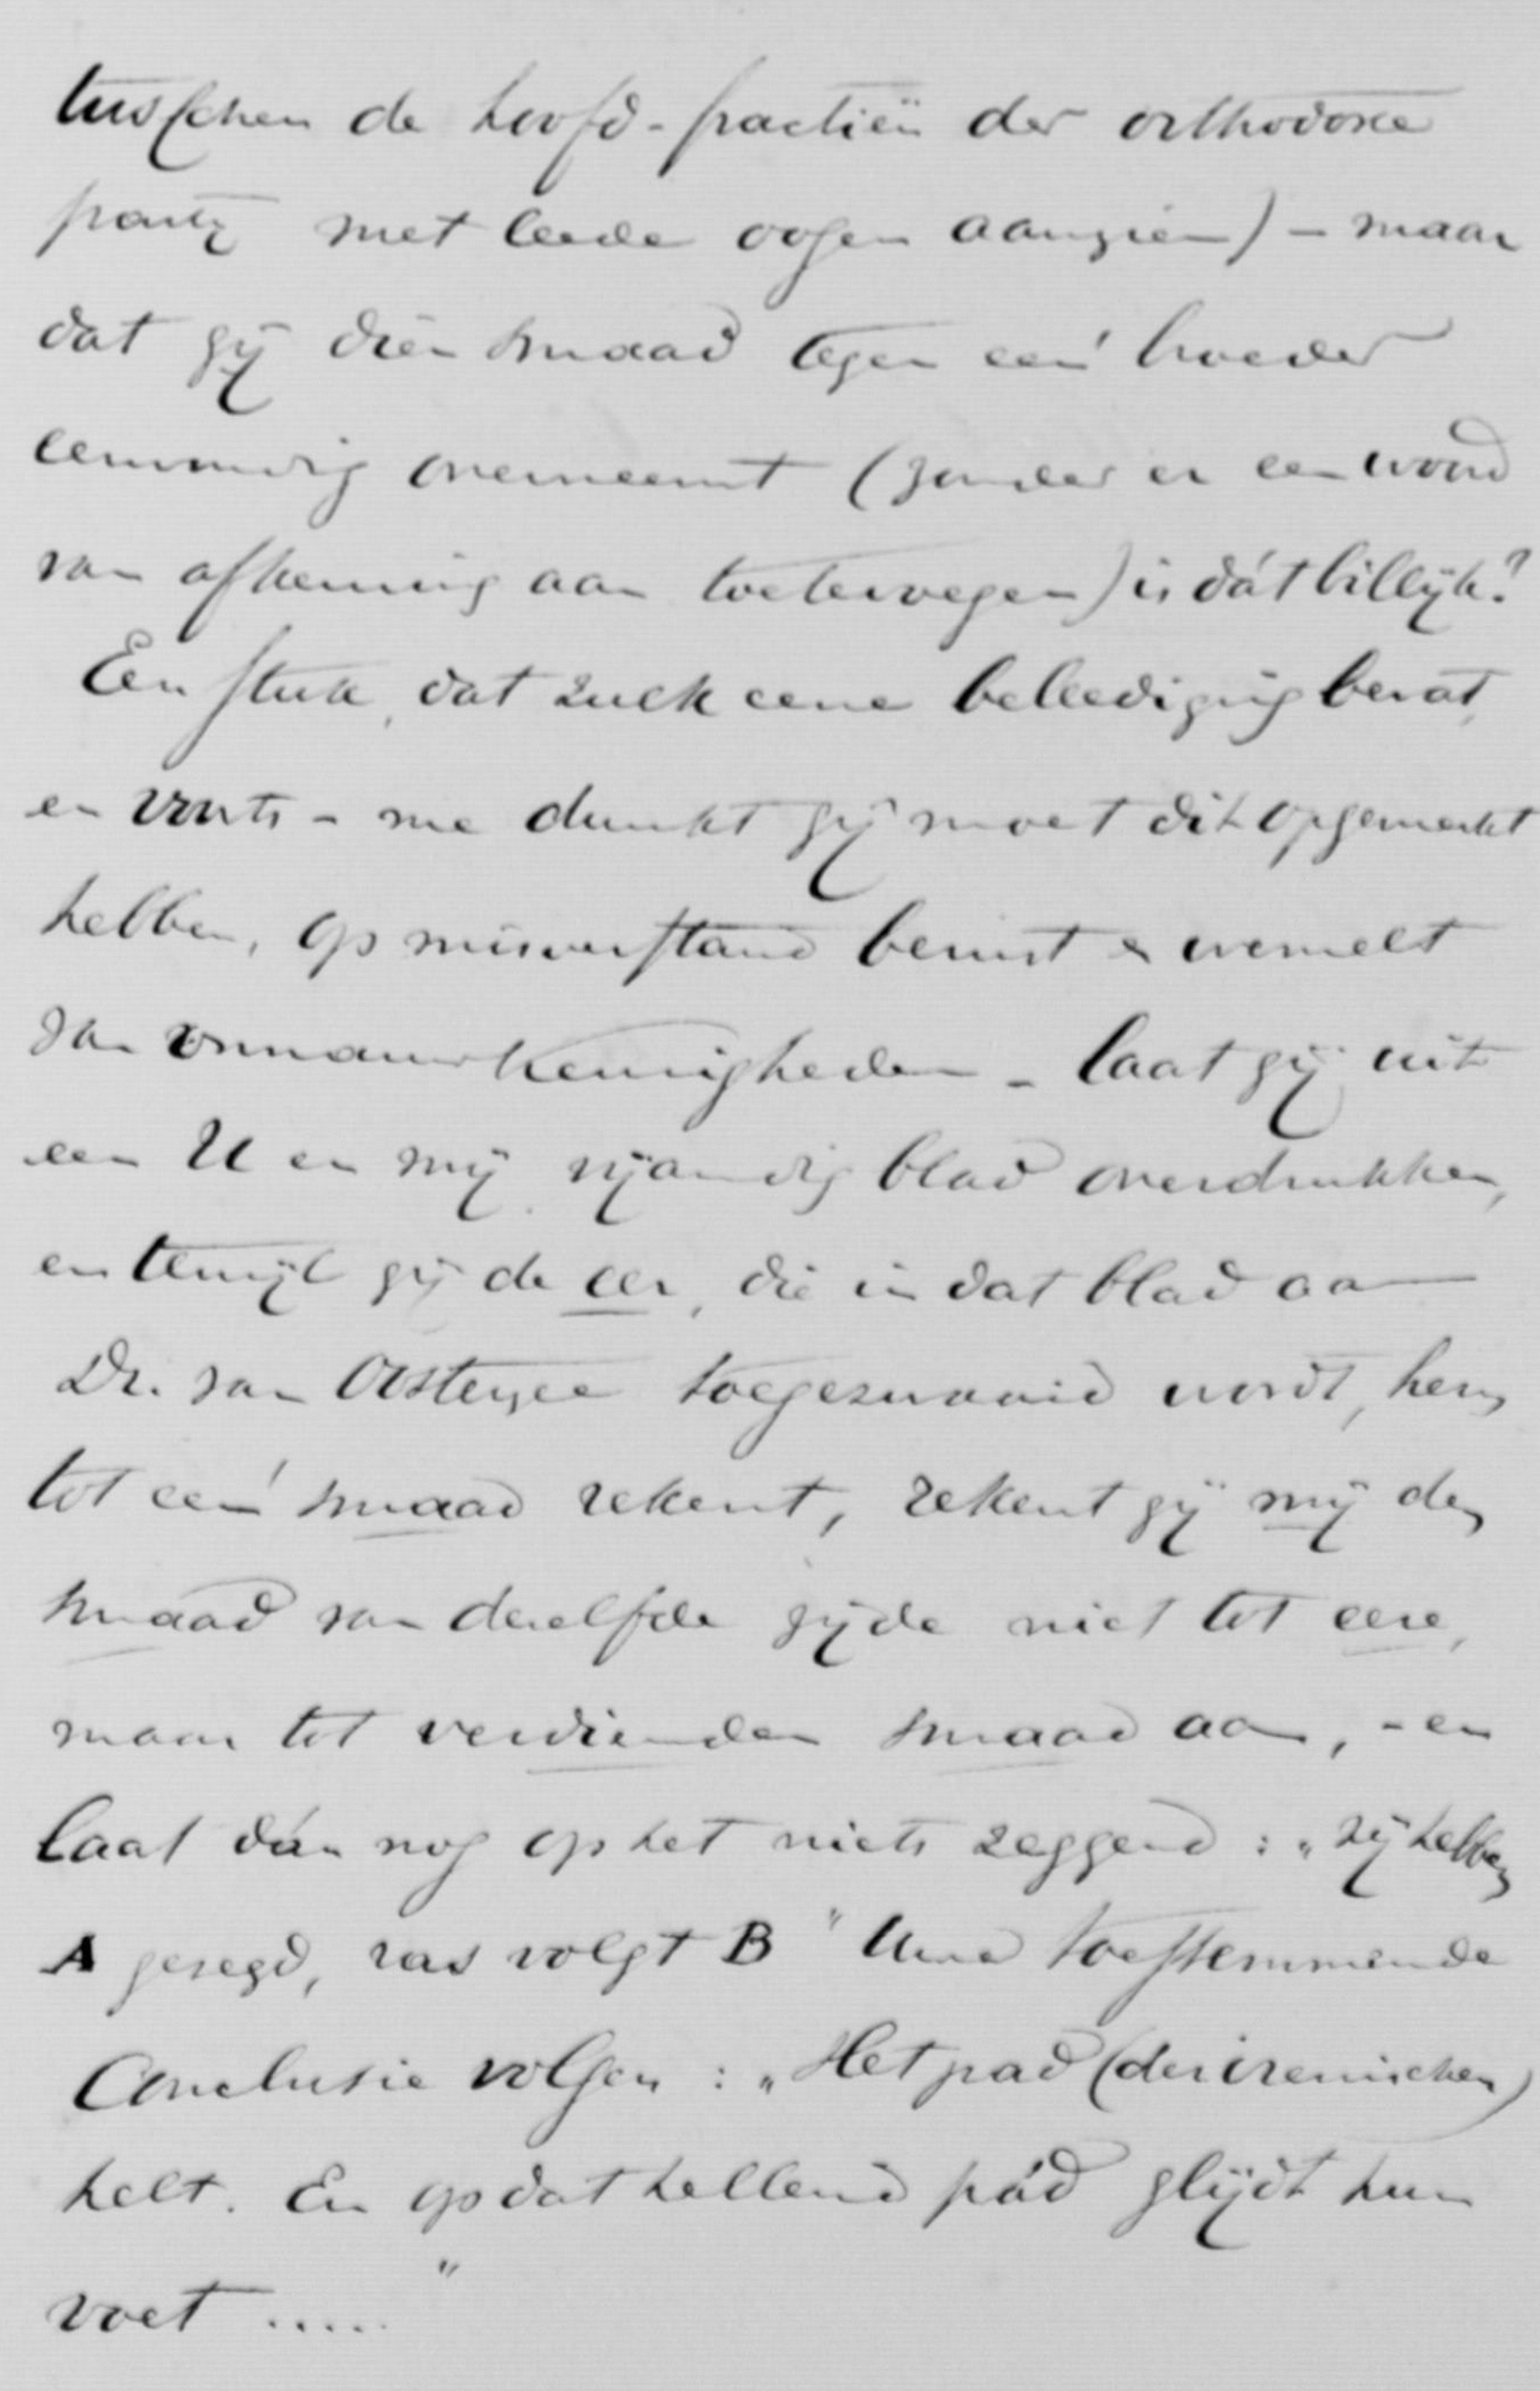 tusschen de hoofd-fractiën der orthodoxe
partij met leede oogen aanzien) - maar
dat gij dien smaad tegen één broeder
eenvoudig overneemt (zonder er een woord
van afkeuring aan toetevoegen) is dát billijk?
Een stuk, dat zulk eene beleediging bevat,
en voorts - me dunkt gij moet dit opgemerkt
hebben, op misverstand berust & wemelt
van onnauwkeurigheden - laat gij uit
een U en mij vijandig blad overdrukken,
en terwijl gij de eer, die in dat blad aan
Dr. van Oosterzee toegezwaaid wordt, hem
tot een smaad rekent, rekent gij mij den
smaad van dezelfde zijde niet tot eere,
maar tot verdienden smaad aan, - en
laat dán nog op het niets zeggend: „zij hebben
A gezegd, ras volgt B" Uwe toestemmende
Conclusie volgen: „Het pad (der irenischen)
helt. En op dat hellend pád glijdt hun
voet ....."